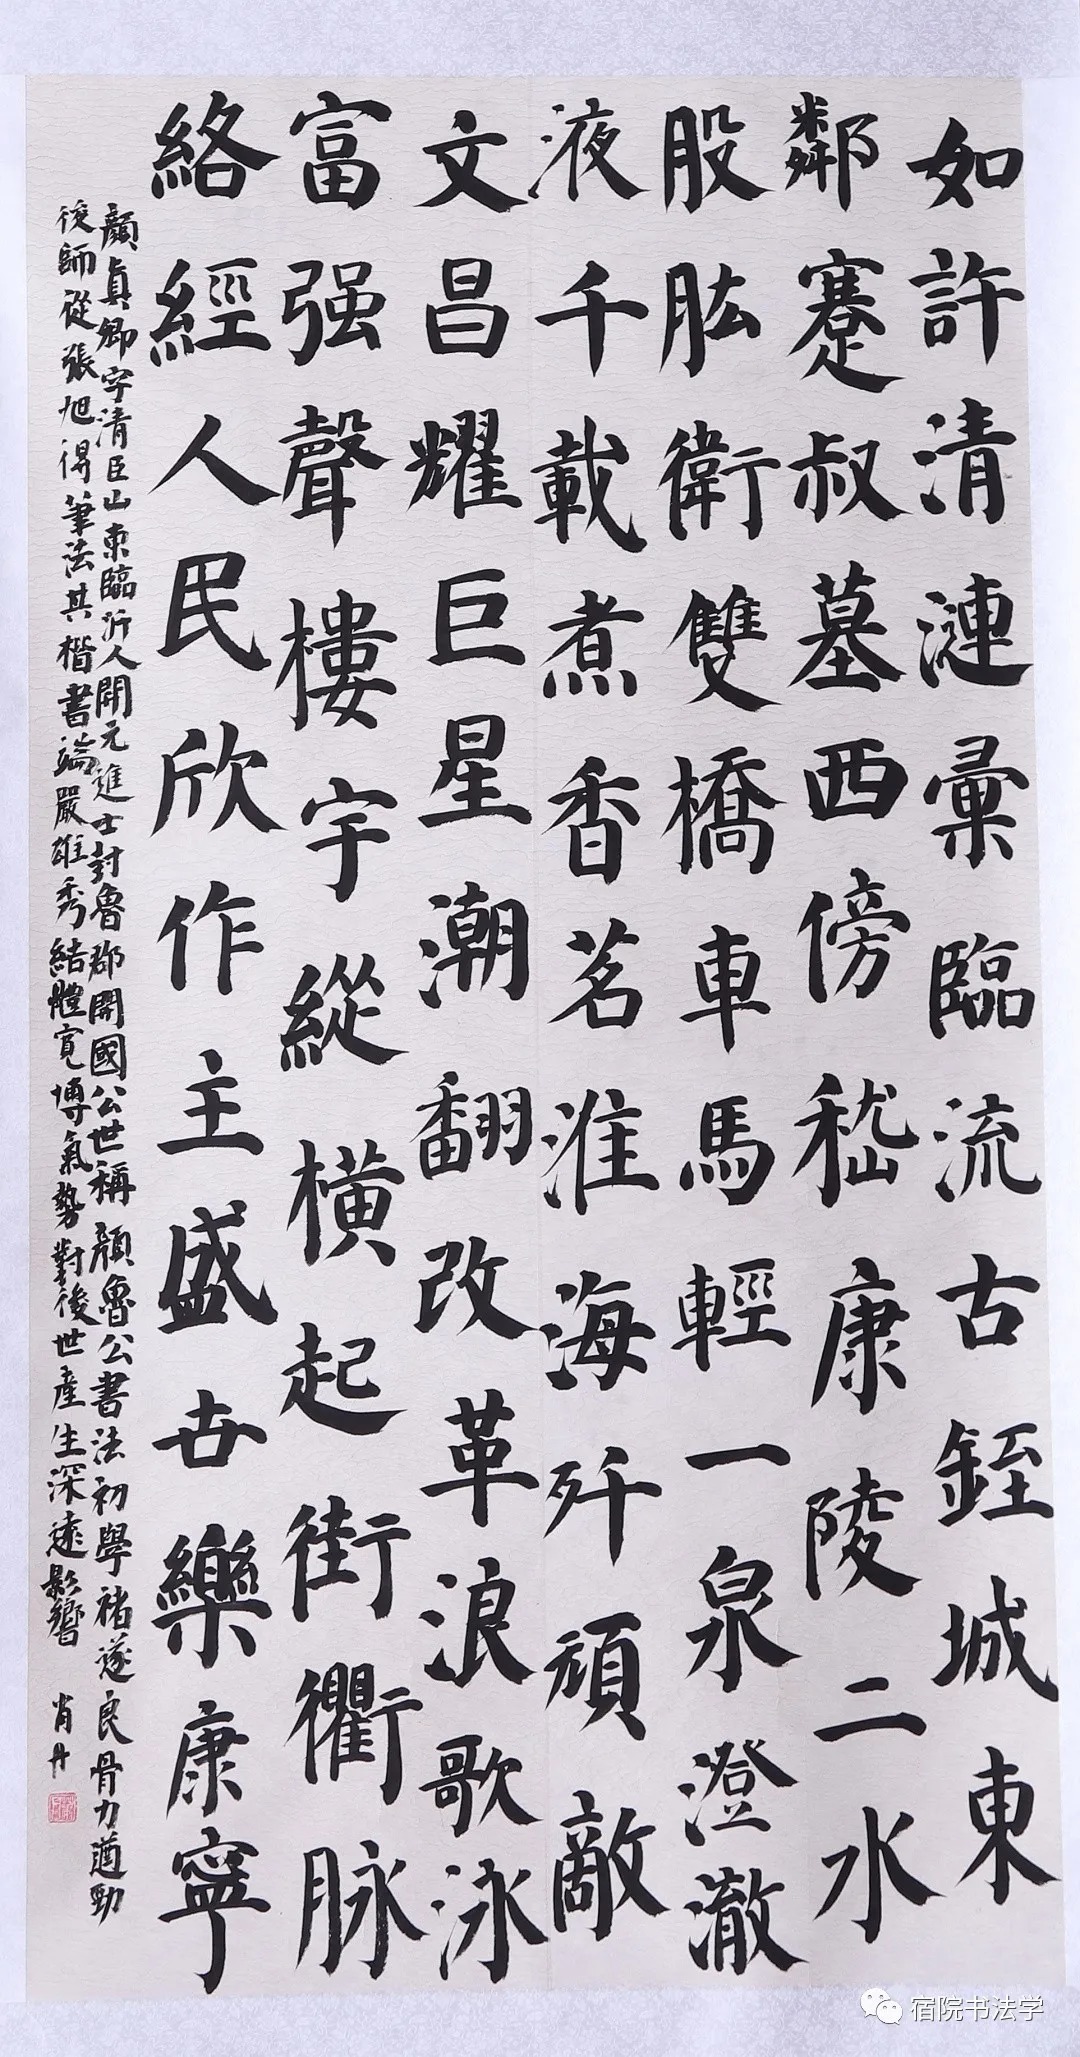 如許清漣彙臨流古銍城東
鄰蹇叔墓西傍嵇康陵二水
股肱衛雙橋車馬輕一泉澄澈
液千載煮香茗淮海歼頑敵
文昌耀巨星潮翻改革浪歌泳
富强聲樓宇縱横起街衢脉
絡經人民欣作主盛世樂康寧
顔真卿字清臣山東臨沂人開元進士封魯郡開國公世稱顔魯公書法初學褚遂良骨力遒勁
後師從張旭得筆法其楷書端嚴雄秀結體寬博氣勢對後世產生深遠影響 肖丹
宿院书法学